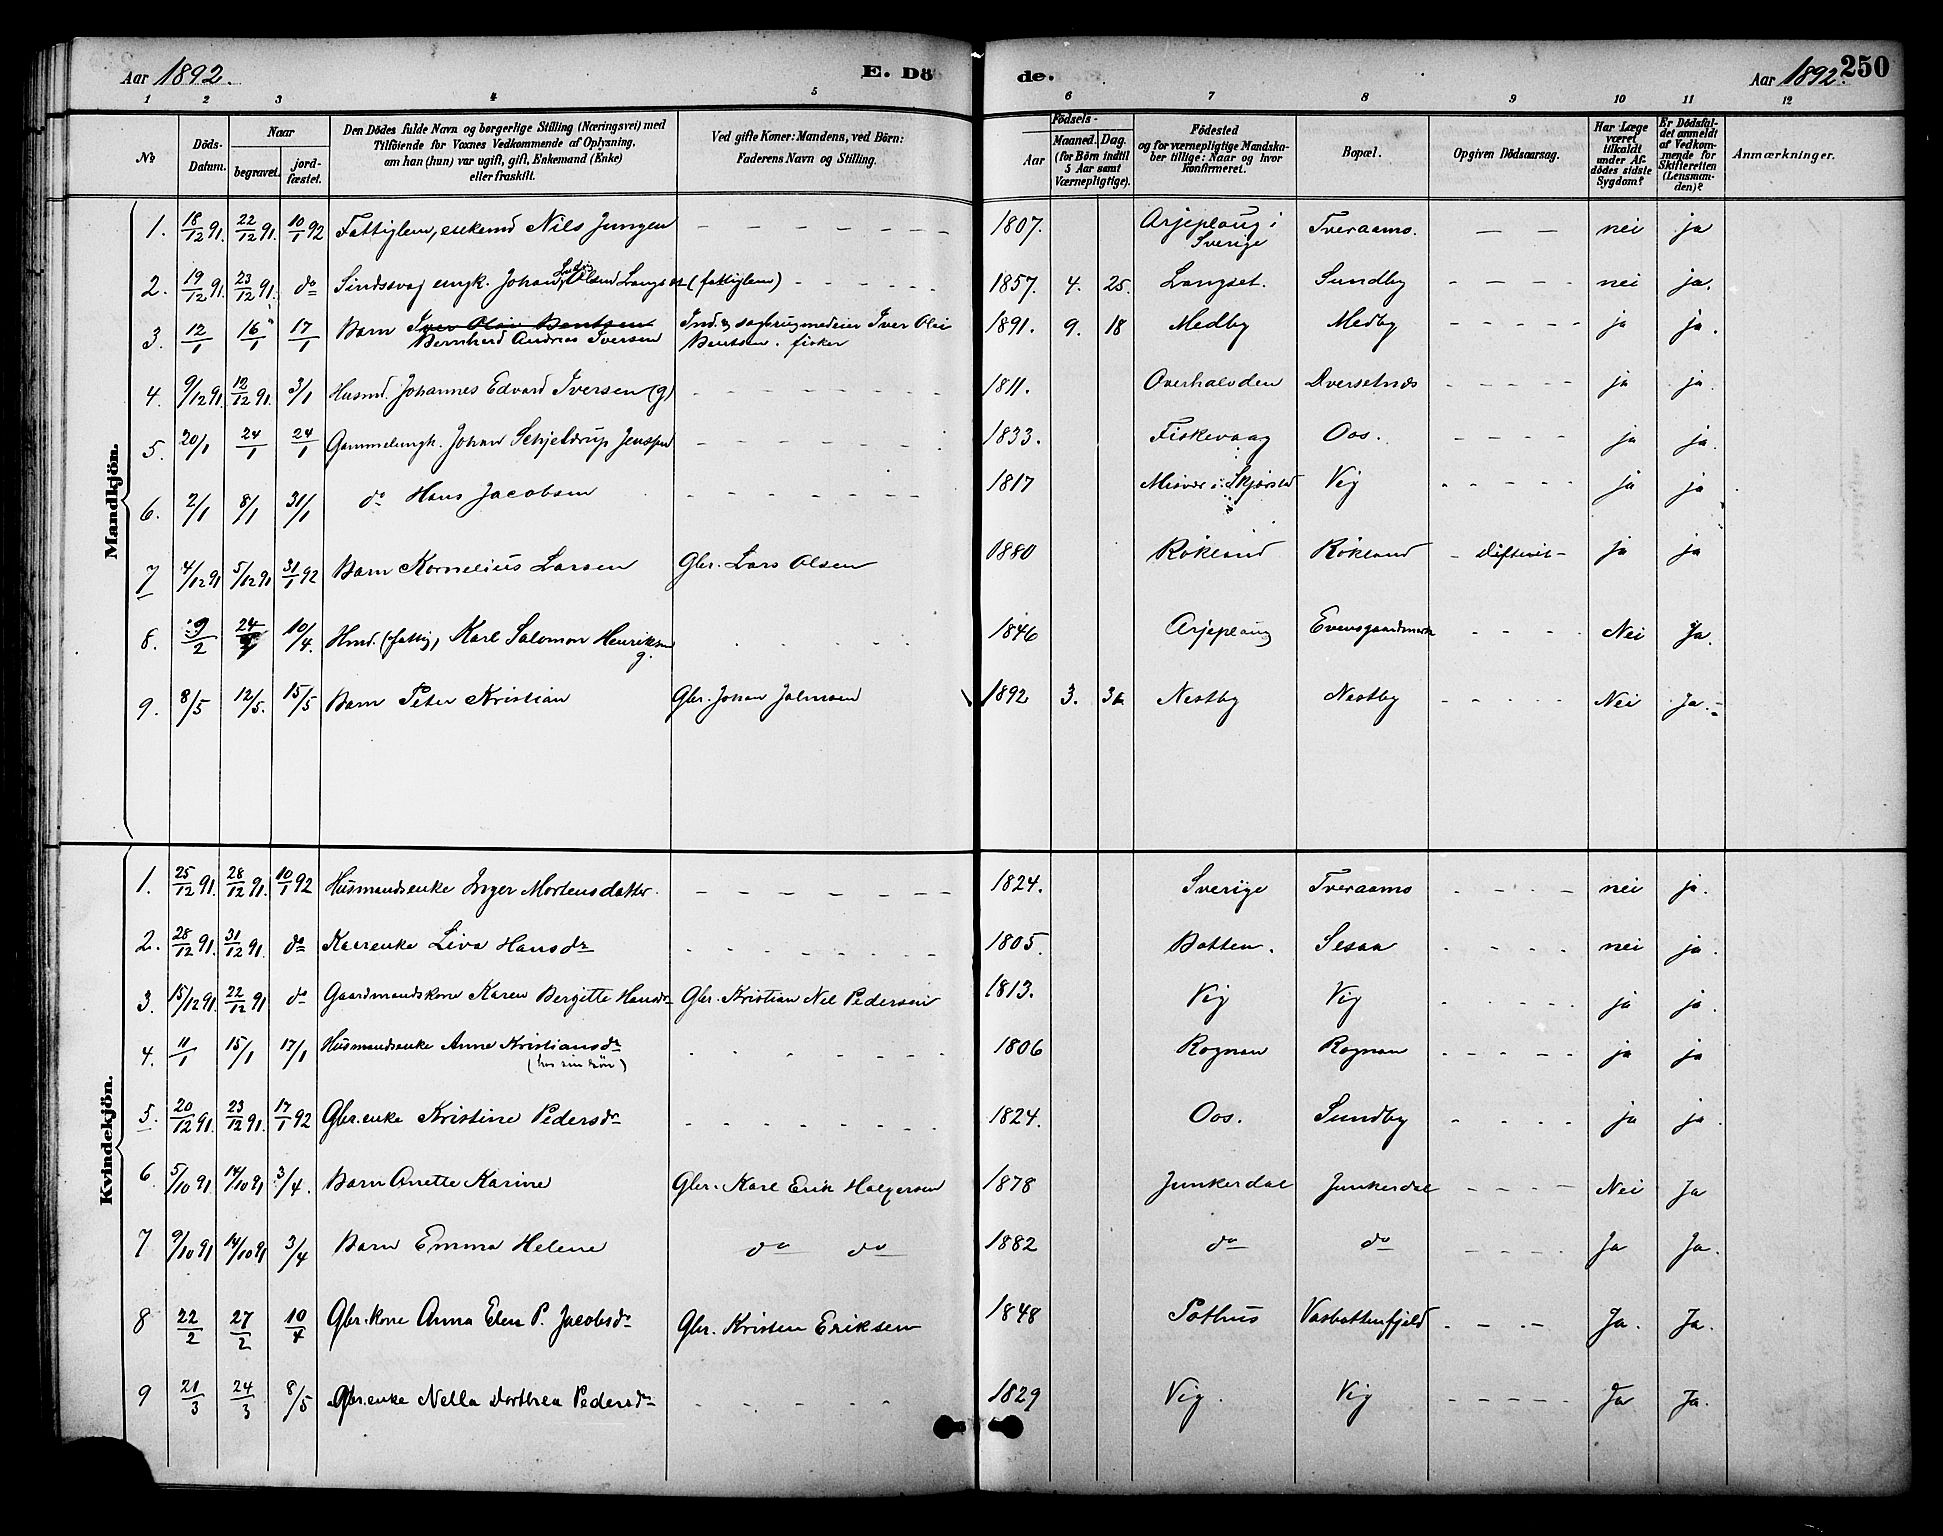 Aar 1892. E. Dö de. Aar 1892. 250
1 2 3 4 5 6 7 8 9 10 11 12
No Döds-Datum. Naar begravet. jord-fæstet. Den Dödes fulde Navn og borgerlige Stilling (Næringsvei) med Tilföiende for Voxnes Vedkommende af Oplysning, om han (hun) var ugift, gift, Enkemand (Enke) eller fraskilt. Ved gifte Koner: Mandens, ved Börn: Faderens Navn og Stilling. Födsels- Aar Maaned. Dag. (for Börn indtil 5 Aar samt Værnepligtige). Födested og for værnepligtige Mandskaber tillige: Naar og hvor konfirmeret. Bopæl. Opgiven Dödsaarsag. Har Læge været tilkaldt under Afdödes sidste Sygdom? Er Dödsfaldet anmeldt af Vedkommende for Skifteretten (Lensmanden)? Anmærkninger.
Mandkjön.
1. 18/12 91. 22/12 91. 10/1 92 Fattiglem, enkemd Nils Jungen - - - - - 1807. Arjeplaug i Sverige Tveraamo. - - nei ja
2. 19/12 91. 23/12 91. do Sindssvag ungk. Johan Ludv. Olsen Langset (fattiglem) - - - - 1857. 4. 25. Langset. Sundby - - - - nei ja.
3. 12/1 16/1 17/1 Barn Iver Olai Bentsen Bernhard Andreas Iversen Ind. & sagbrugmedeier Iver Olai Bentsen. fisker 1891. 9. 18 Medby Medby - - - - - ja ja.
4. 9/12 91. 12/12 91. 3/1 Husmd. Johannes Edvard Iversen (g) - - - - - 1811. Overhalvden Dversetnæs - - - - - ja ja.
5. 20/1 24/1 24/1 Gammelungk. Johan Schjeldrup Jenssen - - - - - 1833. Fiskevaag Oos. - - - - ja ja.
6. 2/1 8/1 31/1 do Hans Jacobsen - - - - - 1817 Misvær i Skjerstad Vig - - - - - ja ja
7 4/12 91 5/12 91 31/1 92 Barn Kornelius Larsen Gbr. Lars Olsen 1880 Rökland Rökland - Difterit - ja ja
8. 9/2 24/ 10/4. Hmd. (fattig) Karl Salomon Henriksen g. - - - - 1846 Arjeplaug Evensgaardmark - - - - Nei Ja.
9. 8/5 12/5. 15/5 Barn Peter Kristian Gbr. Johan Jalmsen 1892 3. Nestby Nestby - - - - - Nei Ja.
Kvindekjön.
1. 25/12 91. 28/12 91. 10/1 92 Husmandsenke Inger Mortensdatter. - - - - - - 1824. Sverige Tveraamo - - - - nei ja.
2. 28/12 91. 31/12 91. do Kaarenke Liva Hansdr - - - - - - 1805. Botten. Sesaa - - - - nei ja.
3. 15/12 91. 22/12 91. do Gaardmandskone Karen Bergitte Hansdr Gbr. Kristian Nel Pedersen 1813. Vig Vig - - - - ja ja.
4. 11/1 15/1 17/1 Husmandsenke Anne Kristiansdr (hos sin sön) - - - - - - 1806 Rognan Rognan - - - - - ja ja
5. 20/12 91. 23/12 91. 17/1 92 Gbr.enke Kristine Pedersdr - - - - - - 1824. Oos. Sundby - - - - ja ja.
6 5/10 91. 14/10 91 3/4. Barn Anette Karine Gbr. Karl Erik Holgersen 1878 Junkerdal Junkerdal - - - - Nei Ja
7 9/10 91 14/10 91 3/4 Barn Emma Helene do do 1882 do do - - - - Ja Ja.
8 22/2 27/2 10/4 Gbr.kone Anna Elen P. Jacobsdr Gbr. Kristen Eriksen 1848 Pothus Vasbottenfjeld - - - - Ja. Ja.
9 21/3 24/3 8/5 Gbr.enke Nella Dorthea Pedersdr - - - - - 1829 Vig. Vig - - - - - Ja Ja.